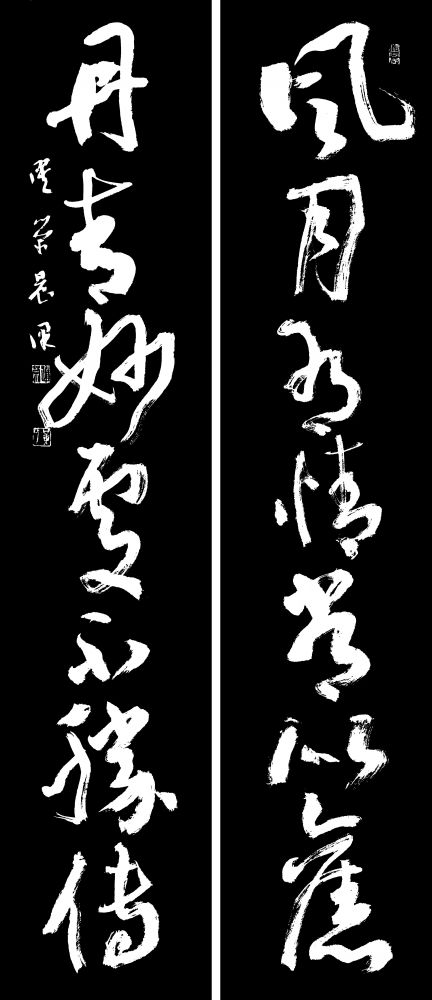 風月有情常似舊
丹青妙處不勝傳